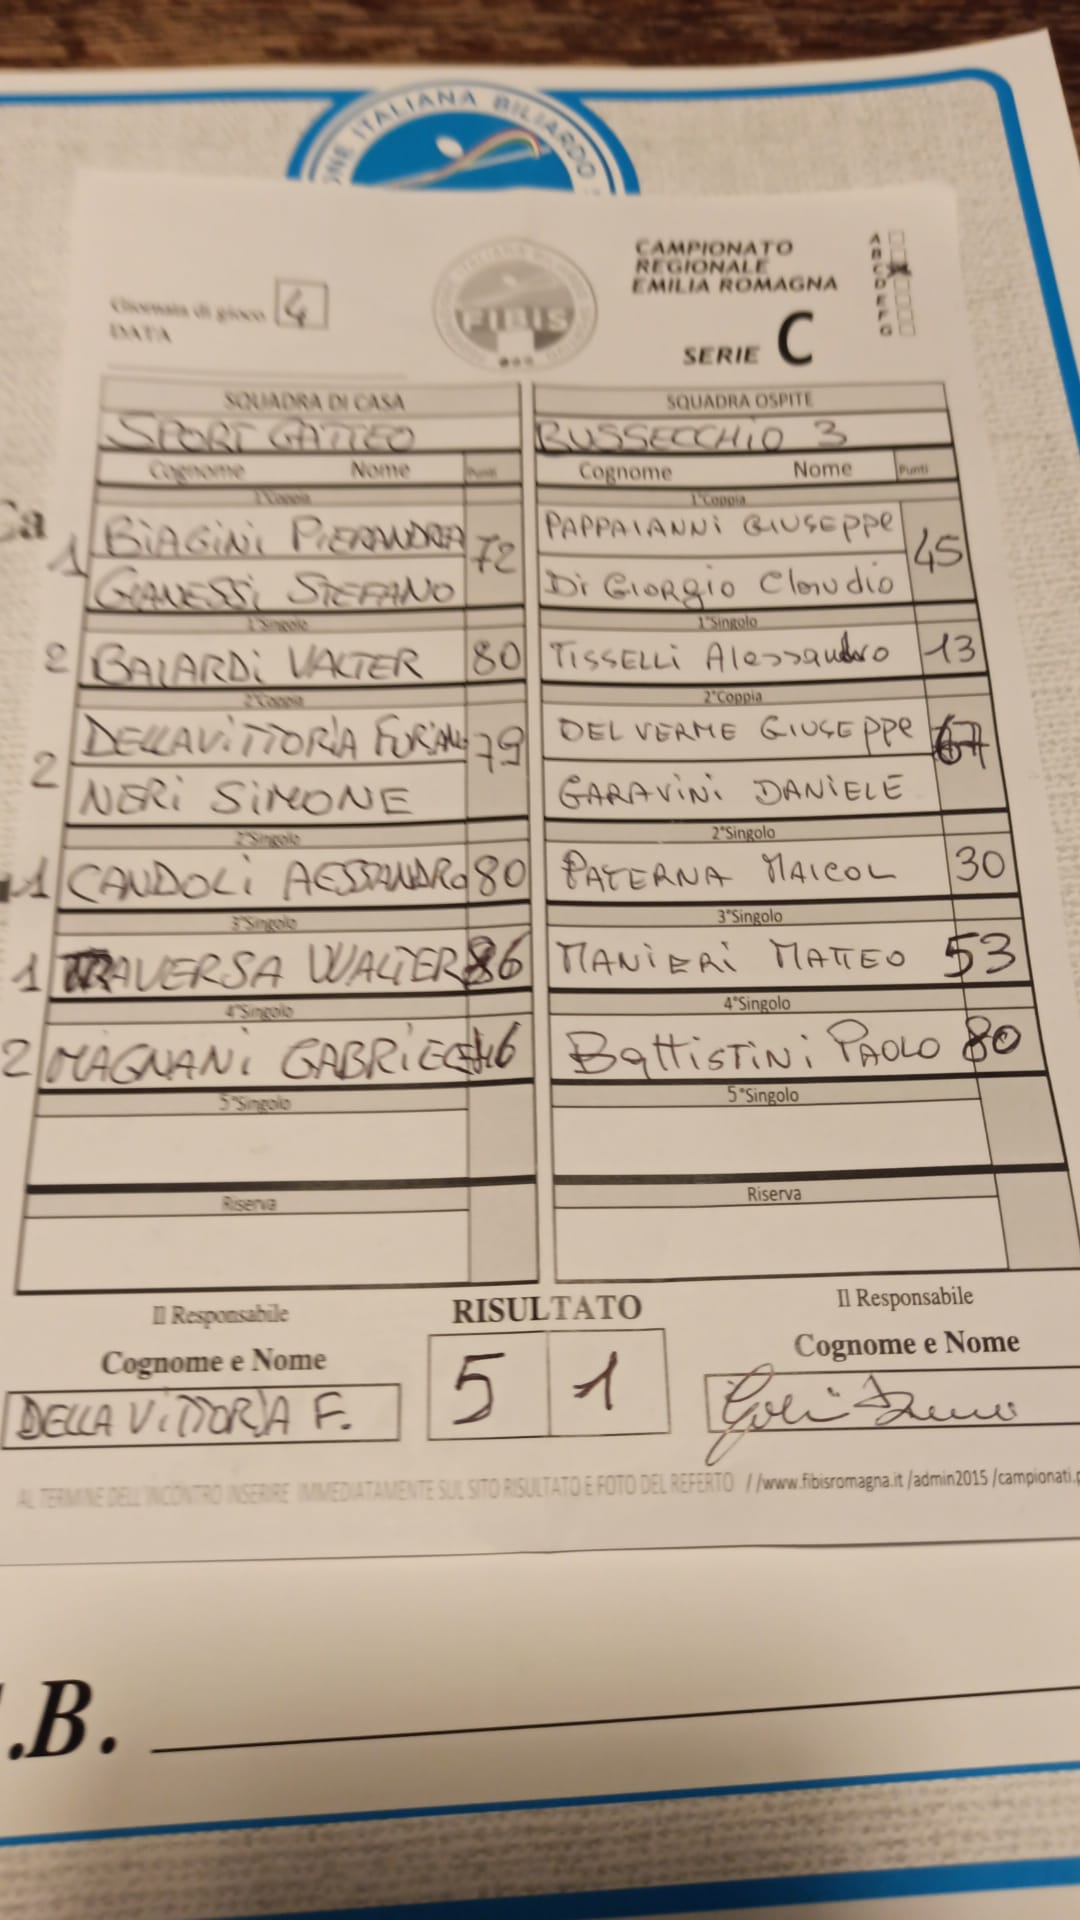 ONE ITALIANA BILIARDO S
CAMPIONATO
REGIONALE
EMILIA ROMAGNA
A
B
C
D
E
F
G
Giornata di gioco 4
DATA
FIBIS
SERIE C
SQUADRA DI CASA SQUADRA OSPITE
SPORT GATTEO BUSSECCHIO 3
Cognome Nome Punti Cognome Nome Punti
1°Coppia 1°Coppia
1 BIAGINI PIERANDREA 72 PAPPAIANNI GIUSEPPE 45
GIANESSI STEFANO Di GIORgio Claudio
1°Singolo 1°Singolo
2 BAIARDI VALTER 80 TISSELLI Alessandro 13
2°Coppia 2°Coppia
2 DELLAVITTORIA FURIAN 79 DEL VERME GIUSEPPE 67
NERI SIMONE GARAVINI DANIELE
2°Singolo 2°Singolo
1 CANDOLI AESSANDRO 80 PATERNA MAICOL 30
3°Singolo 3°Singolo
1 TRAVERSA WALTER 86 MANIERI MATTEO 53
4°Singolo 4°Singolo
2 MAGNANI GABRIELE 46 BattiSTINI PAOLO 80
5°Singolo 5°Singolo
Riserva Riserva
Il Responsabile RISULTATO Il Responsabile
Cognome e Nome Cognome e Nome
DELLA VITTORIA F. 5 1
AL TERMINE DELL'INCONTRO INSERIRE IMMEDIATAMENTE SUL SITO RISULTATO E FOTO DEL REFERTO //www.fibisromagna.it /admin2015 /campionati.p
.B.